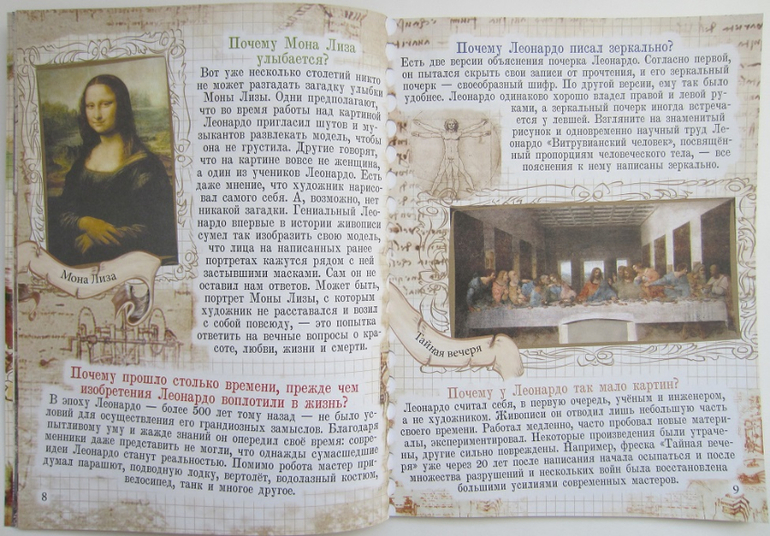 Почему Мона Лиза
улыбается?
Вот уже несколько столетий никто
не может разгадать загадку улыбки
Моны Лизы. Одни предполагают,
что во время работы над картиной
Леонардо пригласил шутов и му-
зыкантов развлекать модель, чтобы
она не грустила. Другие говорят,
что на картине вовсе не женщина,
а один из учеников Леонардо. Есть
даже мнение, что художник нарисо-
вал самого себя. А, возможно, нет
никакой загадки. Гениальный Лео-
нардо впервые в истории живописи
сумел так изобразить свою модель,
что лица на написанных ранее
портретах кажутся рядом с ней
застывшими масками. Сам он не
оставил нам ответов. Может быть,
портрет Моны Лизы, с которым
художник не расставался и возил
с собой повсюду, — это попытка
ответить на вечные вопросы о кра-
соте, любви, жизни и смерти.
Мона Лиза
Почему прошло столько времени, прежде чем
изобретения Леонардо воплотили в жизнь?
В эпоху Леонардо — более 500 лет тому назад — не было ус-
ловий для осуществления его грандиозных замыслов. Благодаря
пытливому уму и жажде знаний он опередил своё время: совре-
менники даже представить не могли, что однажды сумасшедшие
идеи Леонардо станут реальностью. Помимо робота мастер при-
думал парашют, подводную лодку, вертолёт, водолазный костюм,
велосипед, танк и многое другое.
8
Почему Леонардо писал зеркально?
Есть две версии объяснения почерка Леонардо. Согласно первой,
он пытался скрыть свои записи от прочтения, и его зеркальный
почерк — своеобразный шифр. По другой версии, ему так было
удобнее. Леонардо одинаково хорошо владел правой и левой ру-
ками, а зеркальный почерк иногда встреча-
ется у левшей. Взгляните на знаменитый
рисунок и одновременно научный труд Ле-
онардо «Витрувианский человек», посвящён-
ный пропорциям человеческого тела, — все
пояснения к нему написаны зеркально.
Тайная вечеря
Почему у Леонардо так мало картин?
Леонардо считал себя, в первую очередь, учёным и инженером,
а не художником. Живописи он отводил лишь небольшую часть
своего времени. Работал медленно, часто пробовал новые матери-
алы, экспериментировал. Некоторые произведения были утраче-
ны, другие сильно повреждены. Например, фреска «Тайная вече-
ря» уже через 20 лет после написания начала осыпаться и после
множества разрушений и нескольких войн была восстановлена
большими усилиями современных мастеров.
9